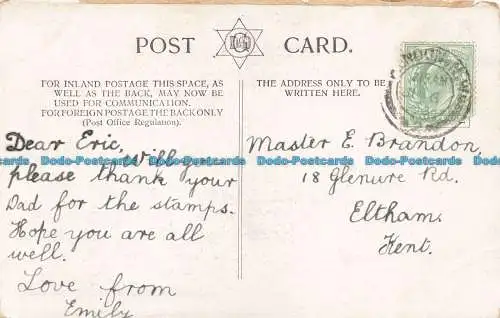 POST CARD.
FOR INLAND POSTAGE THIS SPACE, AS
WELL AS THE BACK, MAY NOW BE
USED FOR COMMUNICATION.
FOR FOREIGN POSTAGE THE BACK ONLY
(Post Office Regulation).
THE ADDRESS ONLY TO BE
WRITTEN HERE.
Dear Eric,
Will you
please thank your
Dad for the stamps.
Hope you are all
well.
Love from
Emily
Master E. Brandon,
18 Glenure Rd.
Eltham,
Kent.
Dodo-Postcards Dodo-Postcards Dodo-Postcards Dodo-Postcards